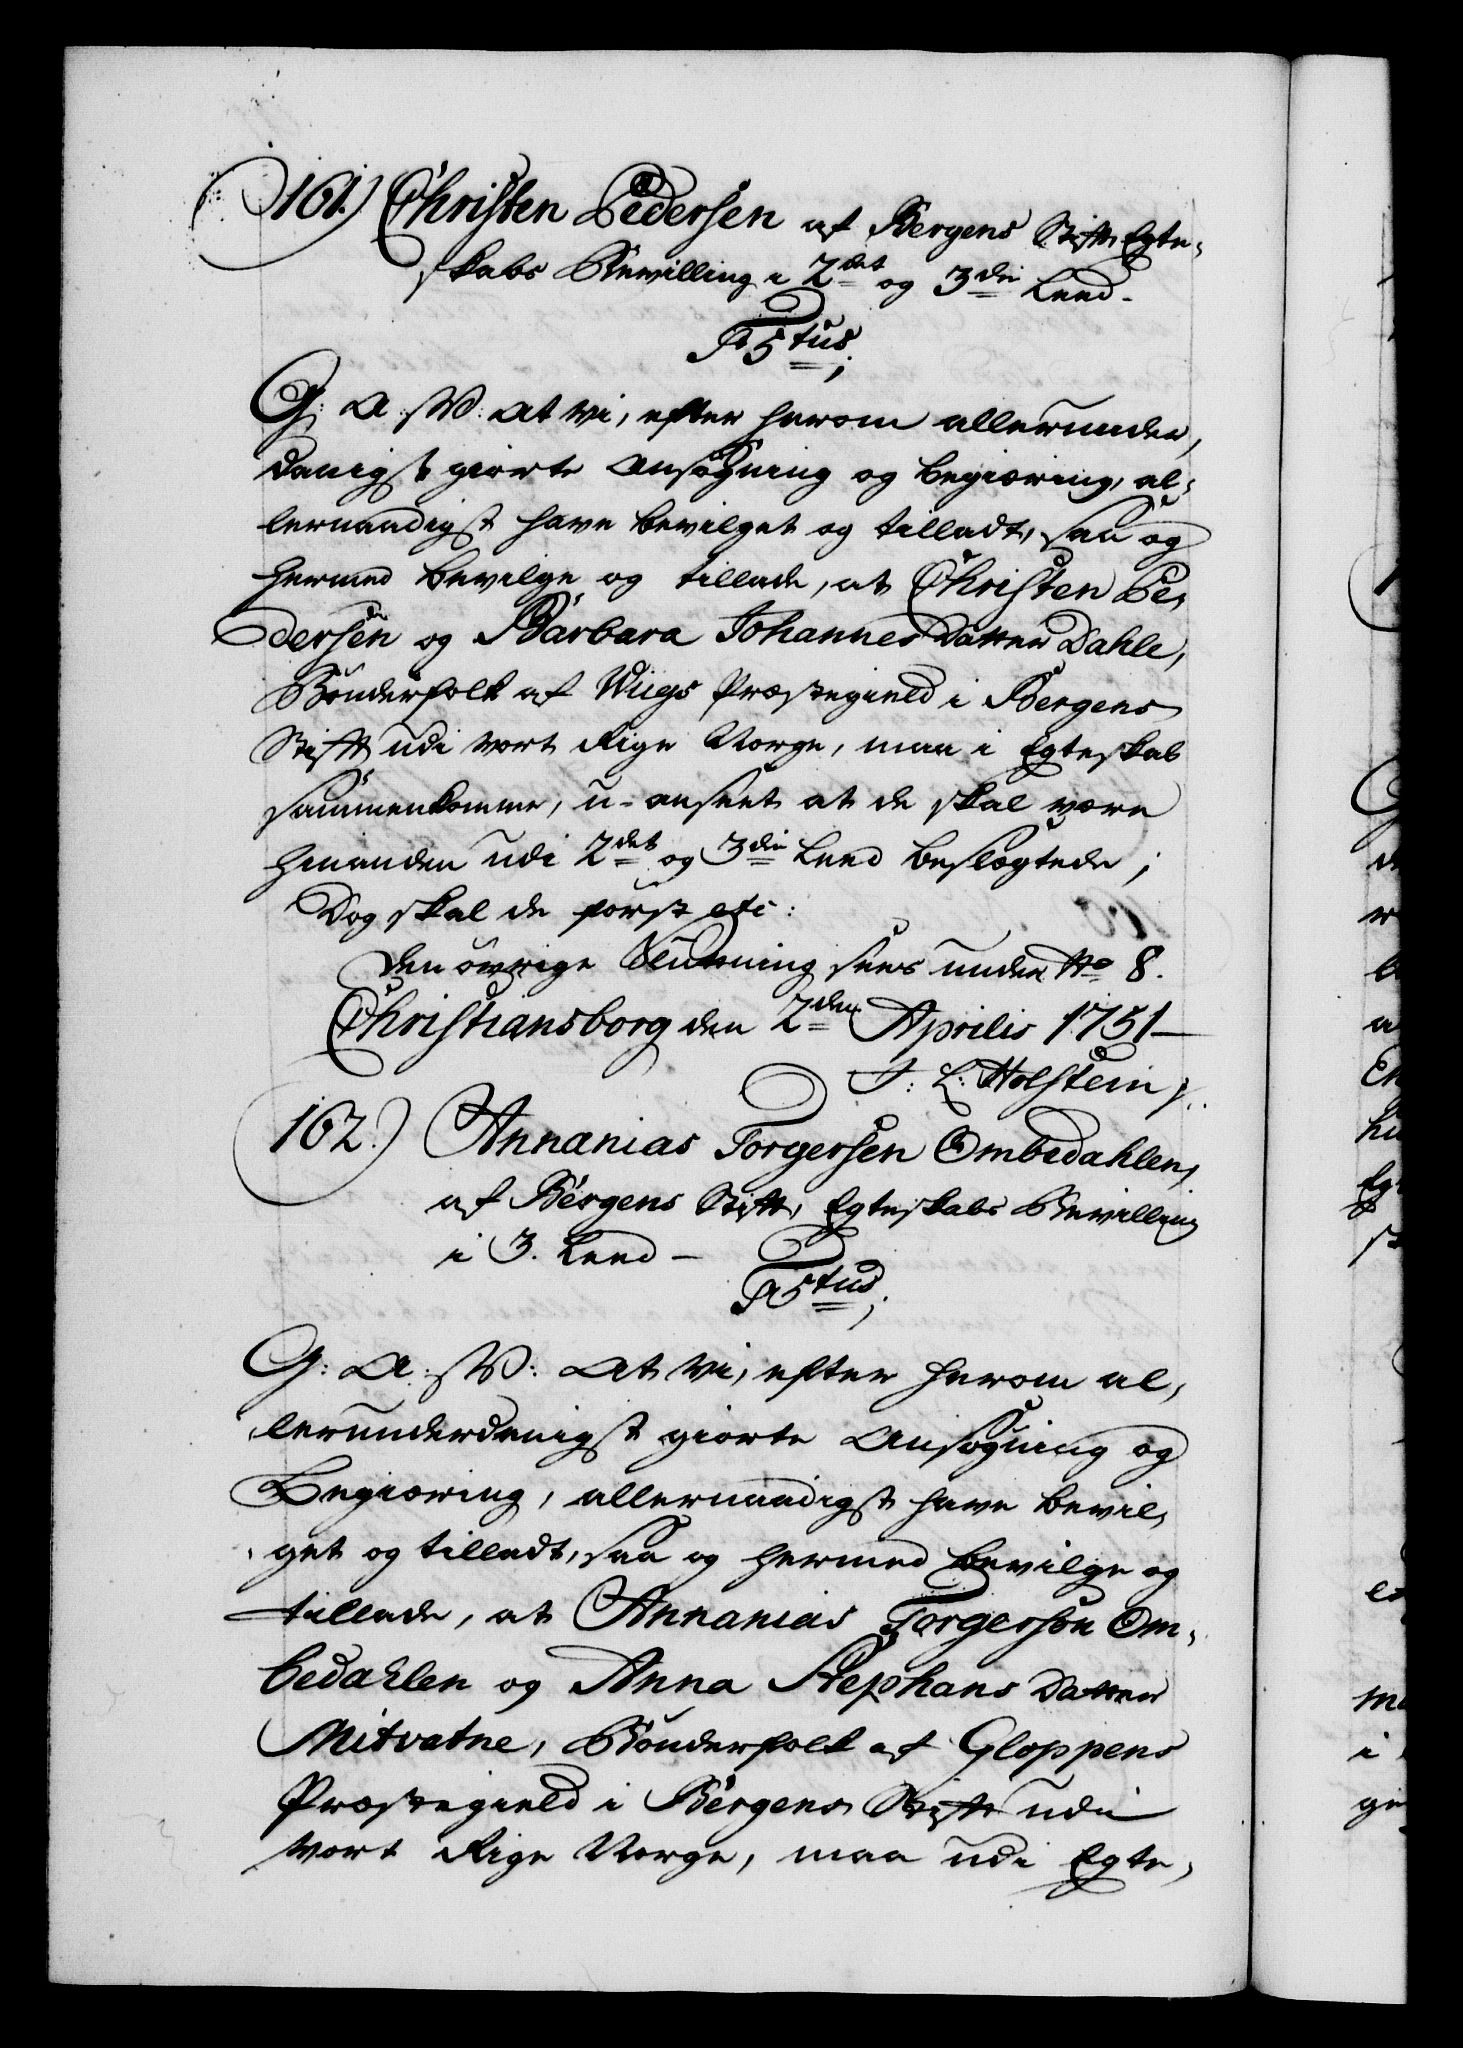 161.) Christen Pedersen af Bergens Stift, Egte-
skabs Bevilling i 2det og 3die Leed-
F5tus;
G: A: W: At vi, efter herom allerunder,
danigst giorte Ansøgning og begiæring, al-
lernaadigst have bevilget og tilladt, saa og
hermed bevilge og tillade, at Christen Pe-
dersen og Barbara Johannes Datter Dahle,
Bønderfolk af Wiigs Præstegield i Bergens
Stift udi vort Rige Norge, maa i Egteskab
sammenkomme, u-anseet at de skal være
hinanden udi 2det og 3die Leed beslægtede;
Dog skal de først etc:
Den øvrige Slutning sees under No 8.
Christiansborg den 2den Aprilis 1751-
J: L: Holstein
162.) Annanias Torgersen Ombedahlen,
af Bergens Stift, Egteskabs Bevilling
i 3. Leed-
F5tus;
G: A: W: At vi, efter herom al-
lerunderdanigst giorte Ansøgning og
Begiæring, allernaadigst have bevil-
get og tilladt, saa og hermed bevilge og
tillade, at Annanias Torgersøn Om-
bedahlen og Anna Stephans Datter
Mitvatne, Bønderfolk af Gloppens
Præstegield i Bergens Stift udi
vort Rige Norge, maa udi Egte-